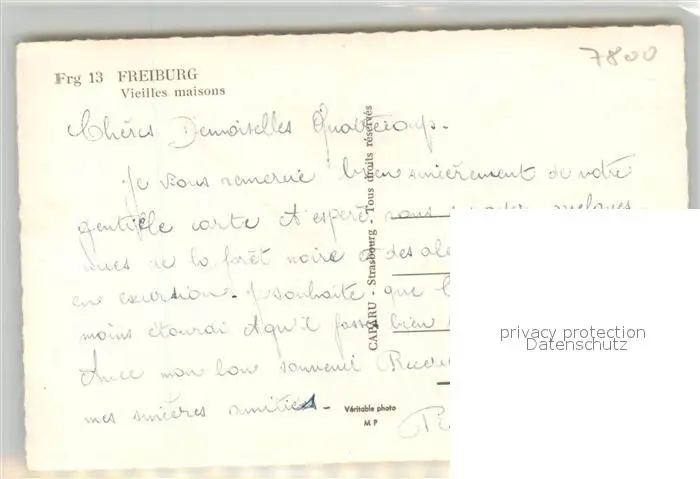 7800
Frg 13 FREIBURG
Vieilles maisons
Chères Demoiselles Quatrecoup.
Je vous remercie bien sincèrement de votre
gentille carte et espère vous quelques
vues de la forêt noire et des
en excursion. Je souhaite que
moins étourdi et qu'il fasse bien
Avec mon bon souvenir
mes sincères amitiés.
CAPARU - Strasbourg - Tous droits réservés
Véritable photo
M P
privacy protection
Datenschutz